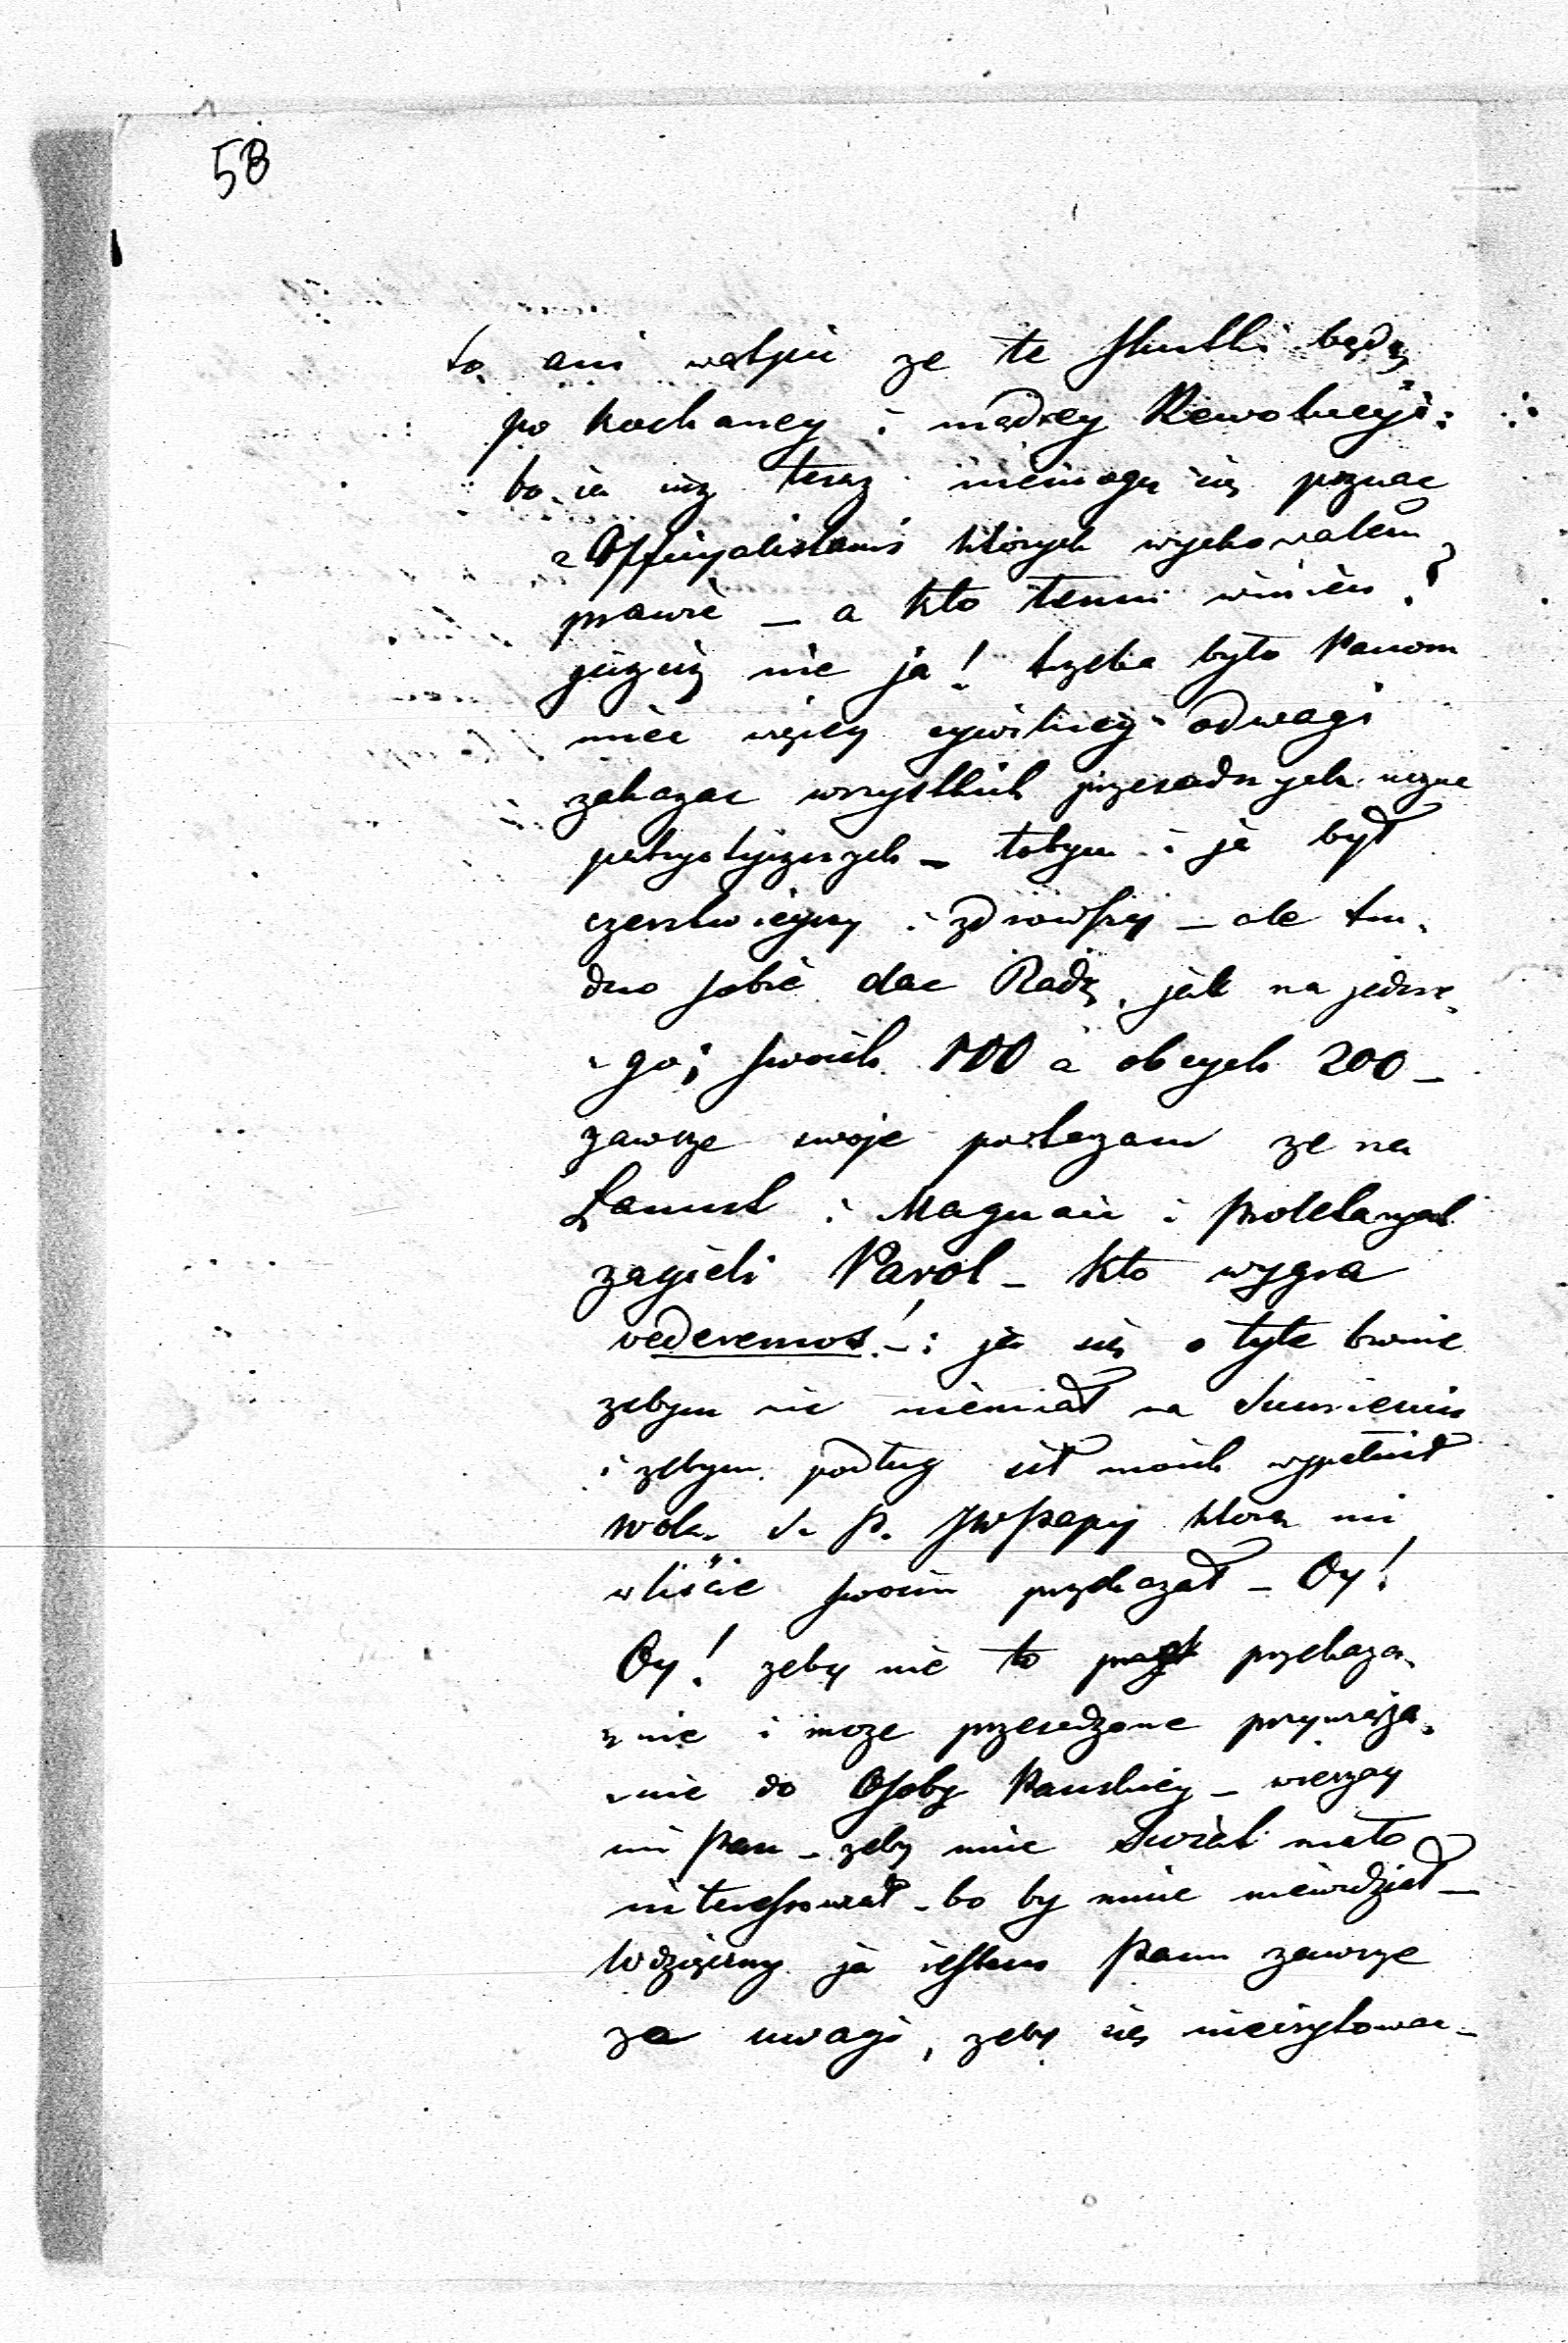 58
to ani wątpie ze te skutki będą
po kochaney i mądrey Rewolucyi:
bo ia iuz teraz niemogę się poznac
z Officyalistami których wychowałem
prawie – a kto temu winien?
juzciż nie ja! trzeba było Panom
miec więcey cywilney odwagi
zakazac wszystkich przesadnych
patryotycznych – tobym i ja był
czerstwieyszy i zdrowszy – ale tru-
dno sobie dac Radę, jak na jedne-
-go; swoich 100 a obcych 200 –
zawsze swoje powtarzam ze na
Zamek i Magnaci i proletaryat
zagieli Parol – kto wygra
vederemos! –: ja się o tyle bronie
zebym nic niemiał na Sumieniu
i zebym podług sił moich wypełnił
wolą S. P. JWPapy ktorą mi
w liście swoim przekazał – Oy!
Oy! zeby nie to przekaza-
-nie i moze przesadzone przywiąza-
-nie do Osoby Panskiey – wierzay
mi Pan – zeby mnie Swiat mało
interessował – bo by mnie niewidział –
Wdzięczny ja iestem Panu zawsze
za uwagi, zeby się nieirytowac –